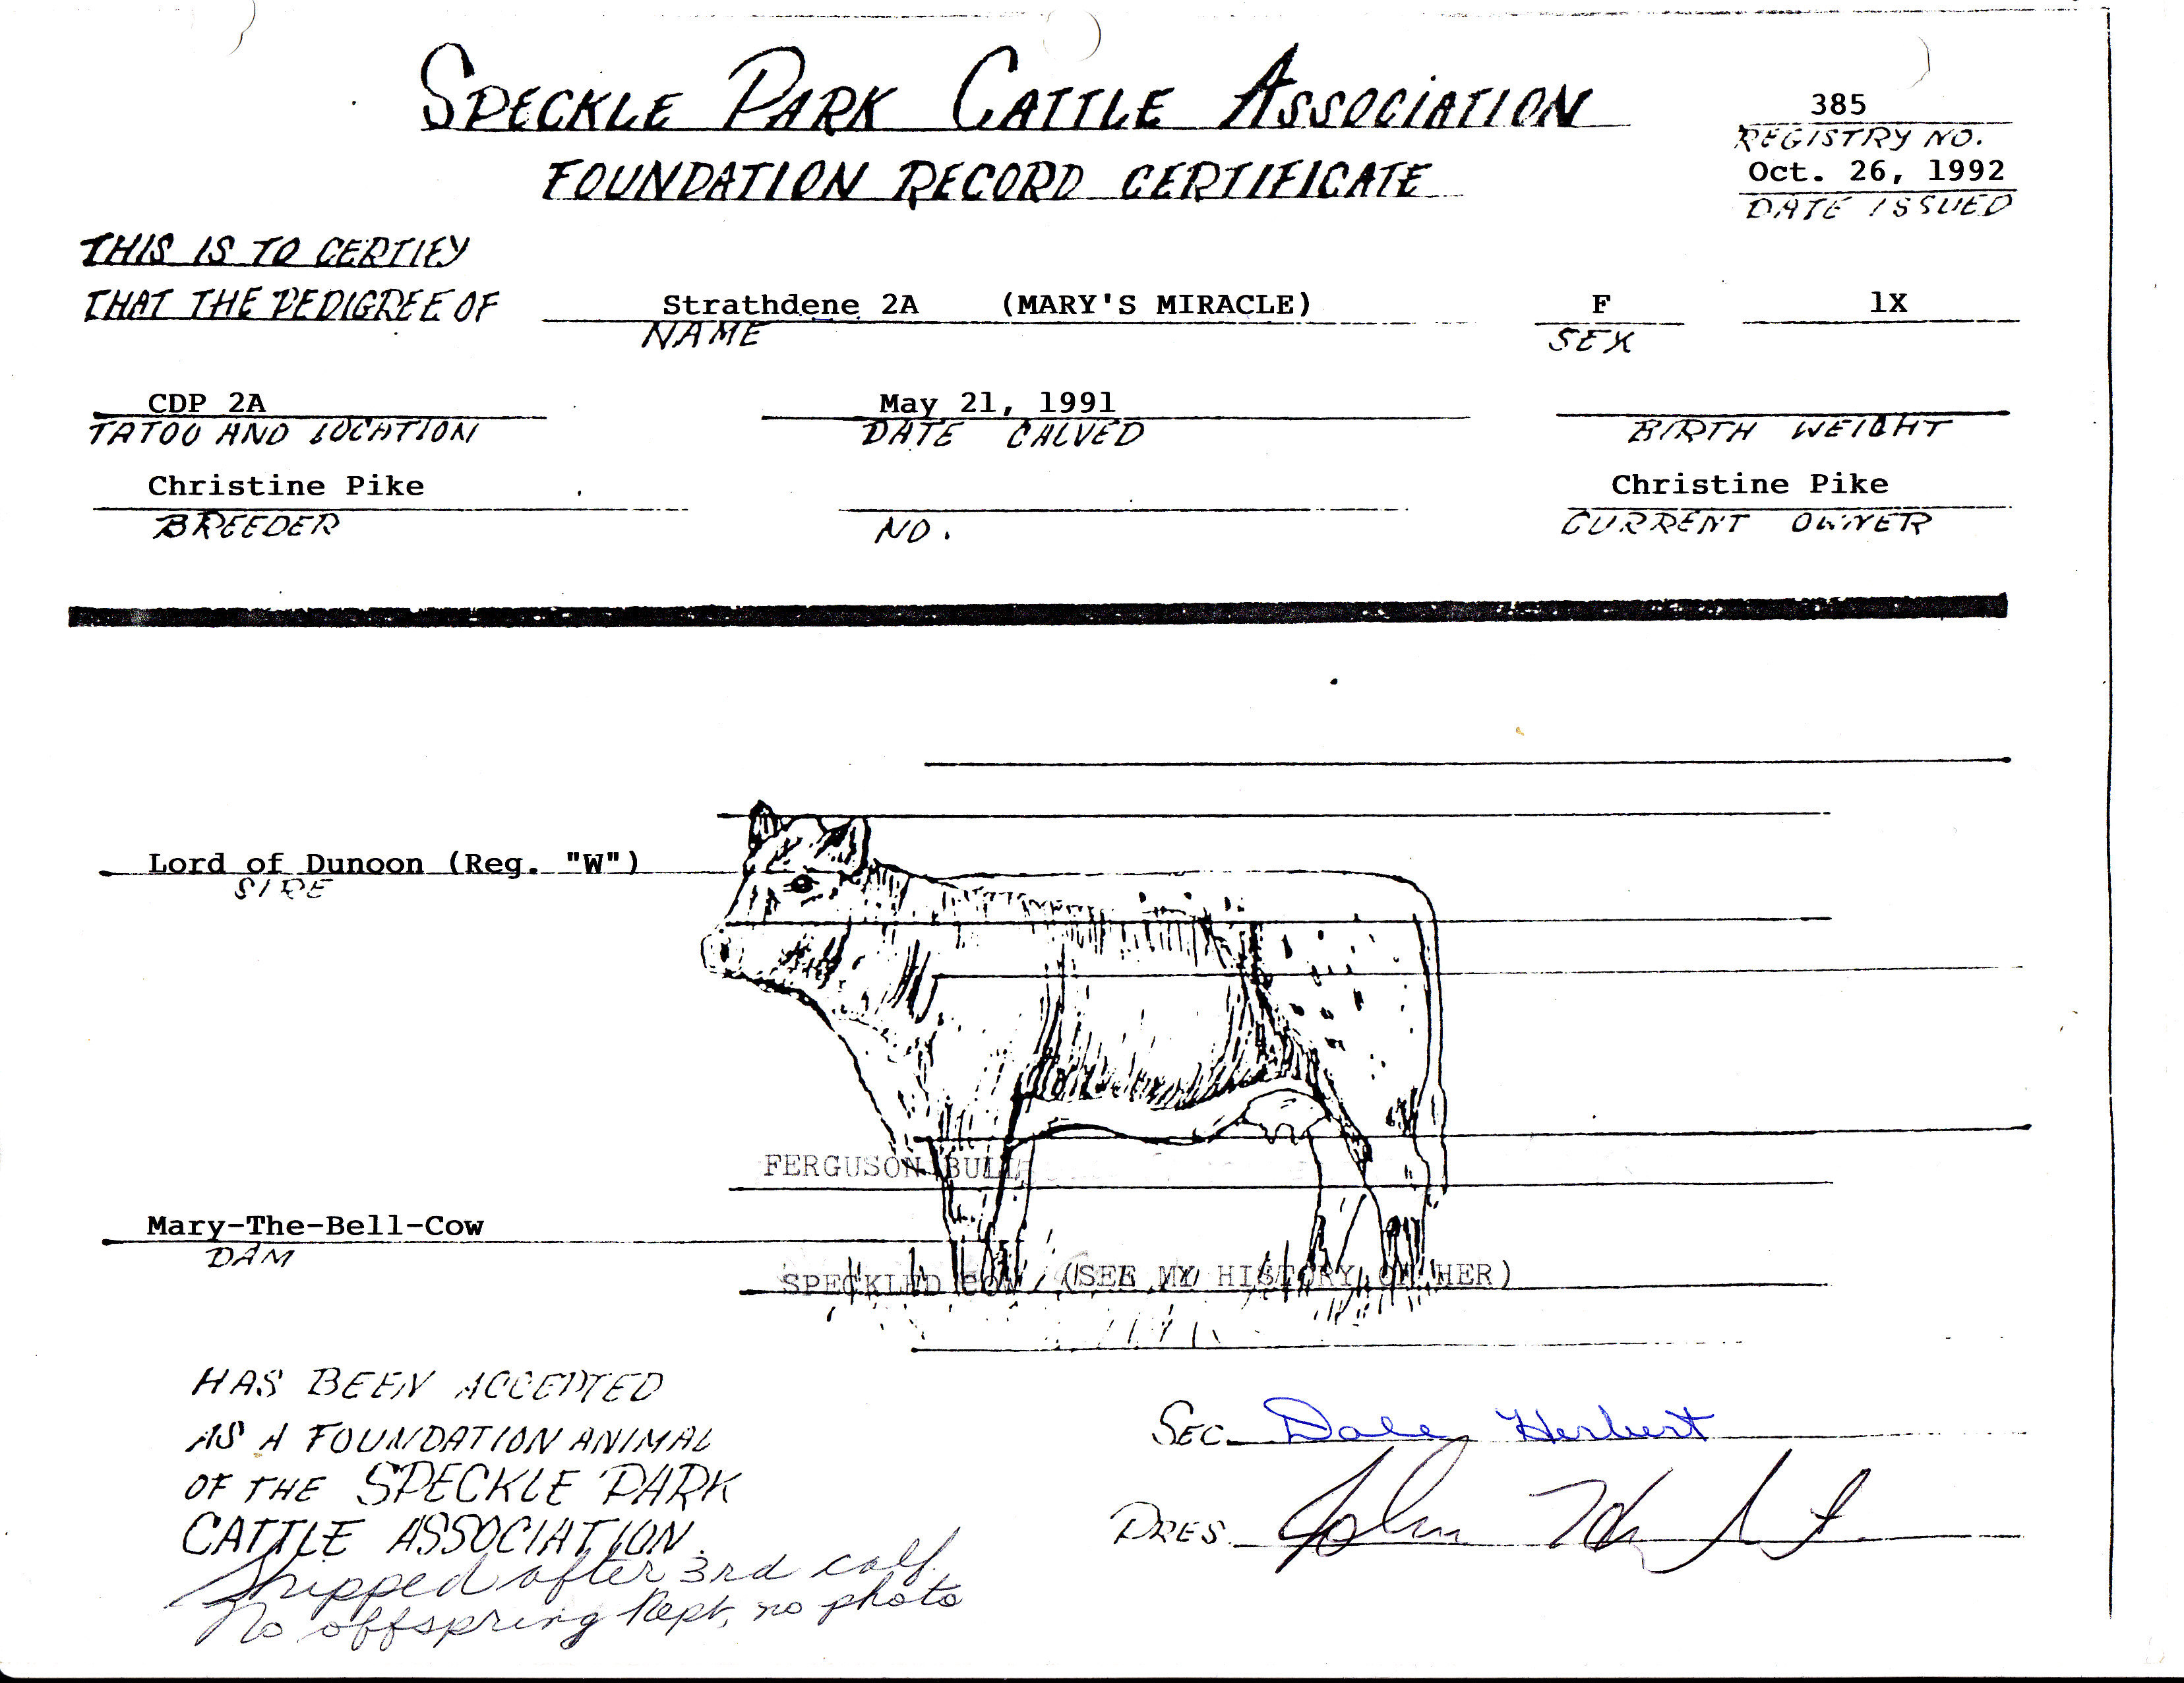 SPECKLE PARK CATTLE ASSOCIATION
385
REGISTRY NO.
FOUNDATION RECORD CERTIFICATE
Oct. 26, 1992
DATE ISSUED
THIS IS TO CERTIFY
THAT THE PEDIGREE OF Strathdene 2A (MARY'S MIRACLE) F 1X
NAME SEX
CDP 2A May 21, 1991
TATOO AND LOCATION DATE CALVED BIRTH WEIGHT
Christine Pike Christine Pike
BREEDER NO. CURRENT OWNER
Lord of Dunoon (Reg. "W")
SIRE
FERGUSON BULL
Mary-The-Bell-Cow
DAM
SPECKLED COW (SEE MY HISTORY ON HER)
HAS BEEN ACCEPTED
AS A FOUNDATION ANIMAL
OF THE SPECKLE PARK
CATTLE ASSOCIATION
SEC. Dale Herbert
PRES. John
Shipped after 3rd calf.
No offspring kept, no photo